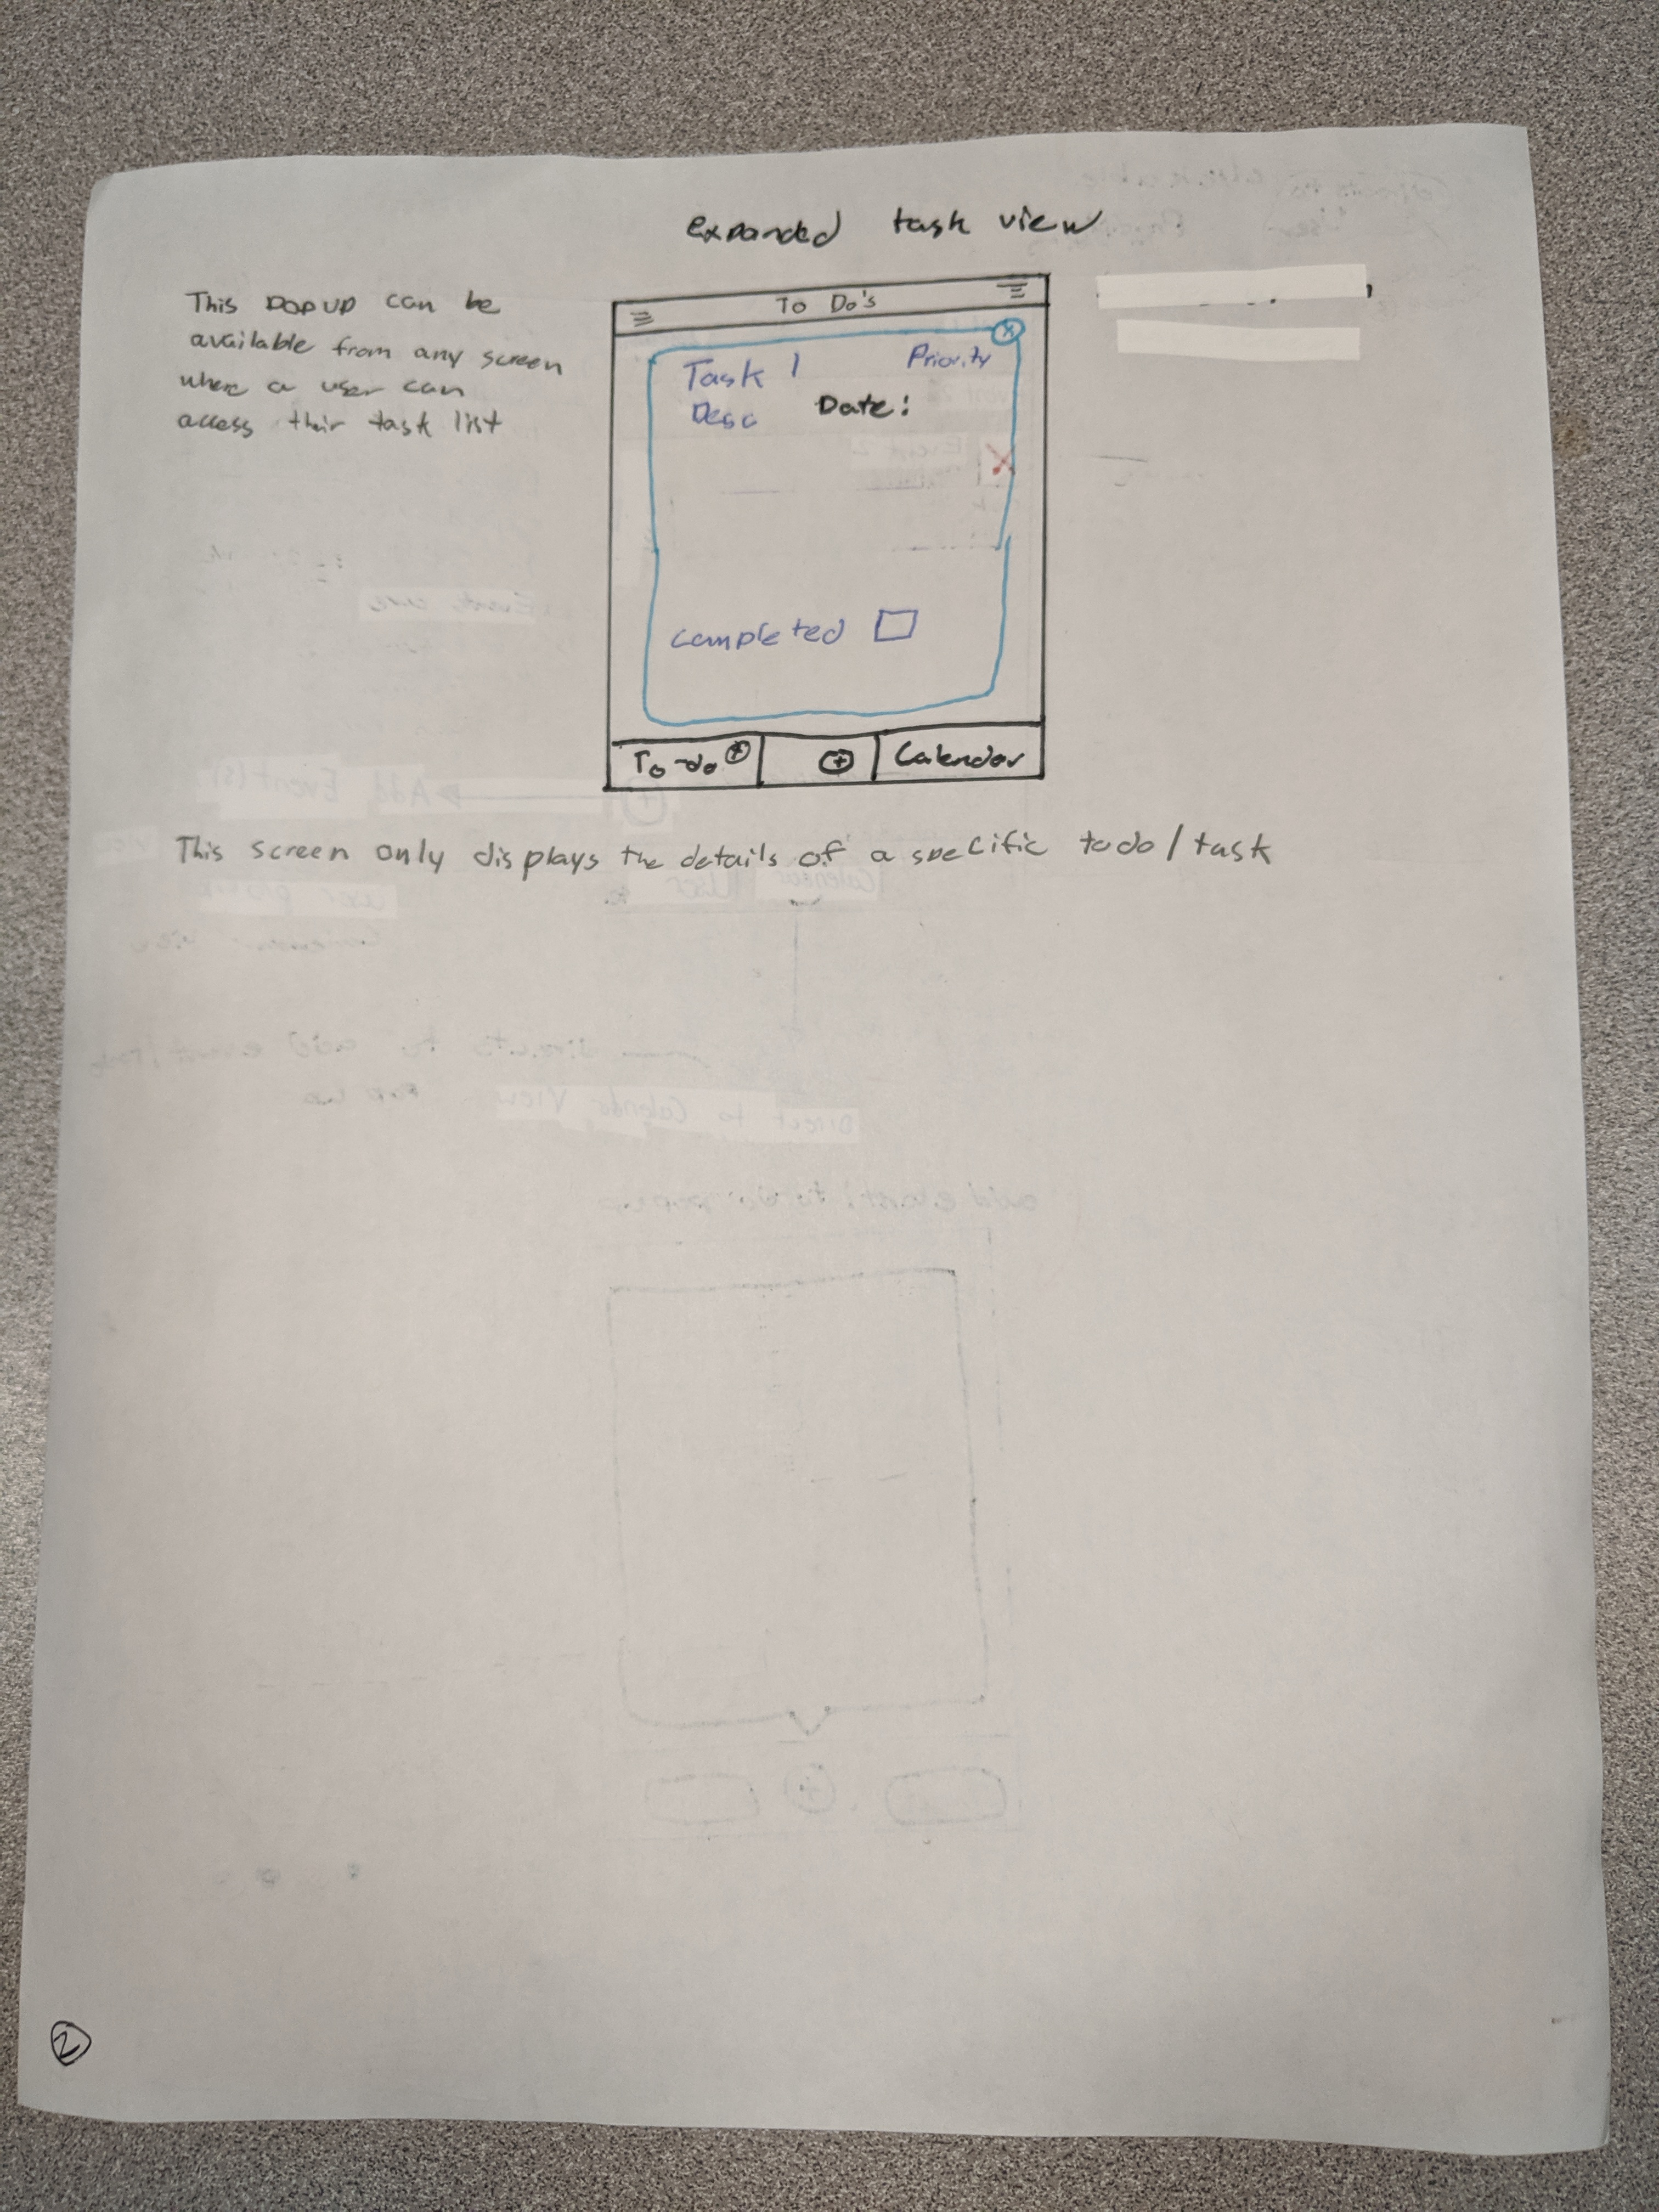 expanded task view
This popup can be
available from any screen
where a user can
access their task list
To Do's
Task 1 Priority
Desc Date:
completed
To-do Calendar
This screen only displays the details of a specific todo/task
2